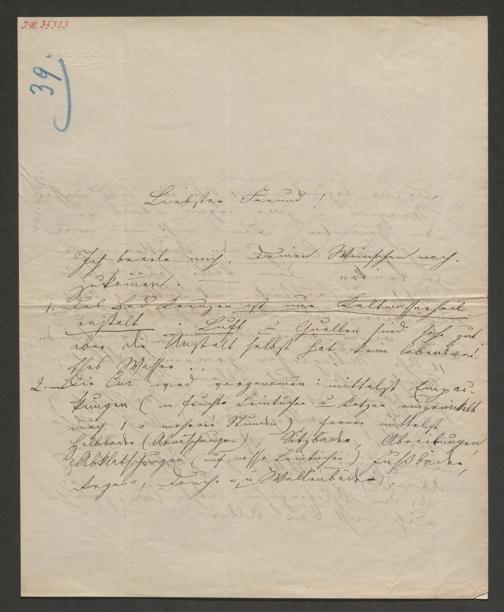 I.N. 35323
39.
Liebster Freund!
Ich beeile mich, Deinen Wünschen nach-
zukommen.
1. Das ist nur Kaltwasserheil
anstalt. Luft u Quellen sind sehr gut
aber die Anstalt selbst hat kein
Wasser.
2. Die Cur wird vorgenommen: mittelst Einpa-
ckungen (in feuchte Leintücher u Kotzen eingewickelt
durch 1 o mehrere Stunden) ferner mittelst
Halbbäder (Abreibungen), Sitzbäder, Abreibungen,
Abklatschungen (auf nasse Leintücher) Fußbäder,
Douche- u Wellenbäder.